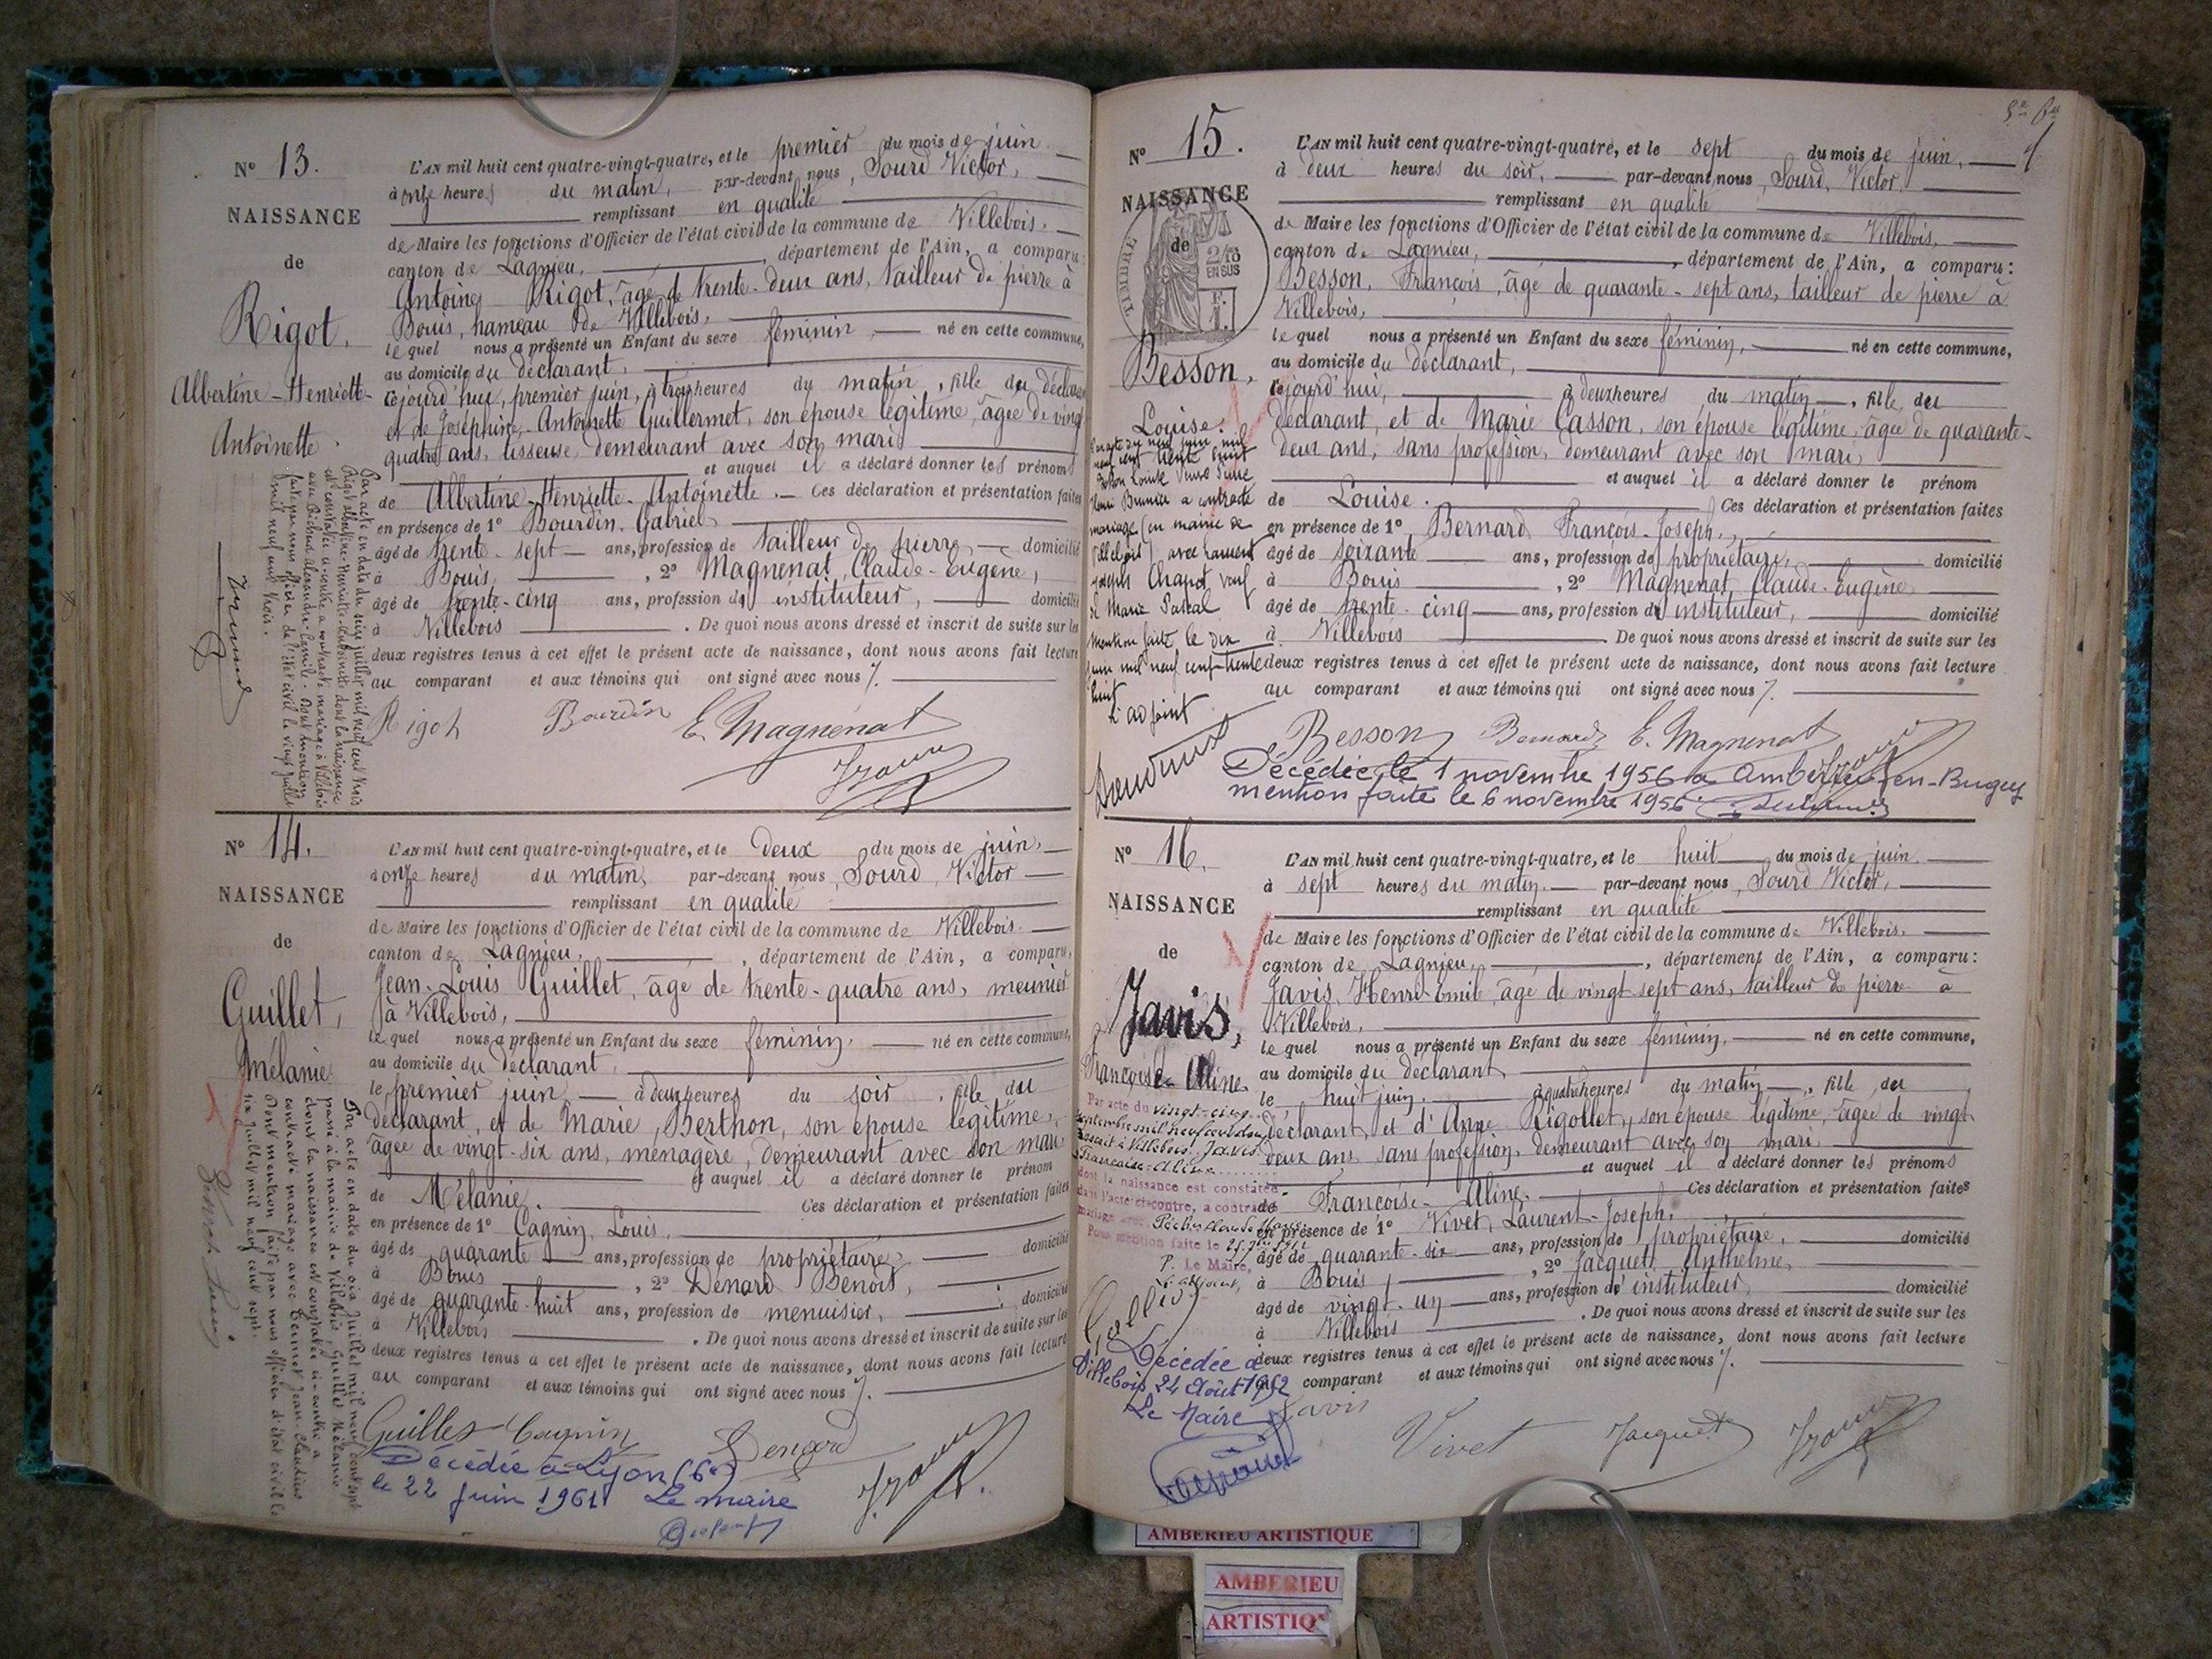 N° 13.
NAISSANCE
de
Rigot,
Albertine-Henriette-
Antoinette.
L'AN mil huit cent quatre-vingt-quatre, et le premier du mois de juin
à onze heures du matin, par-devant nous, Sourd Victor,
remplissant en qualité
de Maire les fonctions d'Officier de l'état civil de la commune de Villebois,
canton de Lagnieu, département de l'Ain, a comparu:
Antoine Rigot, âgé de trente-deux ans, tailleur de pierre à
Bouis, hameau de Villebois,
lequel nous a présenté un Enfant du sexe féminin, né en cette commune,
au domicile du déclarant,
cejourd'hui, premier juin, à trois heures du matin, fille du déclarant
et de Joséphine-Antoinette Guillermet, son épouse légitime, âgée de vingt
quatre ans, tisseuse, demeurant avec son mari
et auquel il a déclaré donner les prénoms
de Albertine-Henriette-Antoinette. Ces déclaration et présentation faites
en présence de 1° Bourdin, Gabriel
âgé de trente-sept ans, profession de tailleur de pierre, domicilié
à Bouis, 2° Magnenat, Claude-Eugène,
âgé de trente-cinq ans, profession d'instituteur, domicilié
à Villebois. De quoi nous avons dressé et inscrit de suite sur les
deux registres tenus à cet effet le présent acte de naissance, dont nous avons fait lecture
au comparant et aux témoins qui ont signé avec nous
Rigot Bourdin E. Magnenat
N° 14.
NAISSANCE
de
Guillet,
Mélanie
L'AN mil huit cent quatre-vingt-quatre, et le deux du mois de juin,
à onze heures du matin, par-devant nous, Sourd, Victor
remplissant en qualité
de Maire les fonctions d'Officier de l'état civil de la commune de Villebois.
canton de Lagnieu, département de l'Ain, a comparu,
Jean-Louis Guillet, âgé de trente-quatre ans, meunier
à Villebois,
lequel nous a présenté un Enfant du sexe féminin, né en cette commune,
au domicile du déclarant,
le premier juin, à deux heures du soir, fille du
déclarant, et de Marie, Berthon, son épouse légitime,
âgée de vingt-six ans, ménagère, demeurant avec son mari
et auquel il a déclaré donner le prénom
de Mélanie. Ces déclaration et présentation faites
en présence de 1° Cagnin, Louis,
âgé de quarante ans, profession de propriétaire, domicilié
à Bouis, 2° Denard Benoît,
âgé de quarante-huit ans, profession de menuisier, domicilié
à Villebois. De quoi nous avons dressé et inscrit de suite sur les
deux registres tenus à cet effet le présent acte de naissance, dont nous avons fait lecture
au comparant et aux témoins qui ont signé avec nous
Guillet Cagnin Denard
Décédée à Lyon (6e)
le 22 juin 1961 Le maire
N° 15.
NAISSANCE
de
TIMBRE
2/10
EN SUS
F.
1.
Besson,
Louise.
L'AN mil huit cent quatre-vingt-quatre, et le sept du mois de juin,
à deux heures du soir, par-devant nous, Sourd, Victor,
remplissant en qualité
de Maire les fonctions d'Officier de l'état civil de la commune de Villebois,
canton de Lagnieu, département de l'Ain, a comparu:
Besson, François, âgé de quarante-sept ans, tailleur de pierre à
Villebois,
lequel nous a présenté un Enfant du sexe féminin, né en cette commune,
au domicile du déclarant,
cejourd'hui, à deux heures du matin, fille du
déclarant, et de Marie Casson, son épouse légitime, âgée de quarante-
deux ans, sans profession, demeurant avec son mari,
et auquel il a déclaré donner le prénom
de Louise. Ces déclaration et présentation faites
en présence de 1° Bernard François-Joseph,
âgé de soixante ans, profession de propriétaire, domicilié
à Bouis, 2° Magnenat, Claude-Eugène
âgé de trente-cinq ans, profession d'instituteur, domicilié
à Villebois. De quoi nous avons dressé et inscrit de suite sur les
deux registres tenus à cet effet le présent acte de naissance, dont nous avons fait lecture
au comparant et aux témoins qui ont signé avec nous
mariage (en mairie de
Villebois) avec Laurent
Joseph Chapot, veuf
de Marie Pascal
Mention faite le dix
juin mil neuf cent-trente
huit
L'adjoint
Besson Bernard E. Magnenat
Décédée le 1 novembre 1956 à Ambérieu-en-Bugey
mention faite le 6 novembre 1956
N° 16.
NAISSANCE
de
Javis,
Françoise-Aline.
L'AN mil huit cent quatre-vingt-quatre, et le huit du mois de juin.
à sept heures du matin. par-devant nous, Sourd Victor,
remplissant en qualité
de Maire les fonctions d'Officier de l'état civil de la commune de Villebois,
canton de Lagnieu, département de l'Ain, a comparu:
Javis, Henri-Emile, âgé de vingt-sept ans, tailleur de pierre à
Villebois,
lequel nous a présenté un Enfant du sexe féminin, né en cette commune,
au domicile du déclarant,
le huit juin. à quatre heures du matin, fille du
déclarant, et d'Anne Rigollet, son épouse légitime, âgée de vingt-
deux ans, sans profession, demeurant avec son mari,
et auquel il a déclaré donner les prénoms
de Françoise-Aline. Ces déclaration et présentation faites
en présence de 1° Vivet, Laurent-Joseph,
âgé de quarante-six ans, profession de propriétaire, domicilié
à Bouis, 2° Jacquet, Anthelme,
âgé de vingt-un ans, profession d'instituteur, domicilié
à Villebois. De quoi nous avons dressé et inscrit de suite sur les
deux registres tenus à cet effet le présent acte de naissance, dont nous avons fait lecture
au comparant et aux témoins qui ont signé avec nous
Par acte du vingt-cinq
septembre mil neuf cent douze
passé à Villebois, Javis
Françoise-Aline
dont la naissance est constatée
dans l'acte ci-contre, a contracté
mariage avec
Pour mention faite le
P. Le Maire,
L'adjoint,
Décédée à
Villebois 24 Août 1952
Le Maire
Javis Vivet Jacquet
AMBERIEU ARTISTIQUE
AMBERIEU
ARTISTIQ